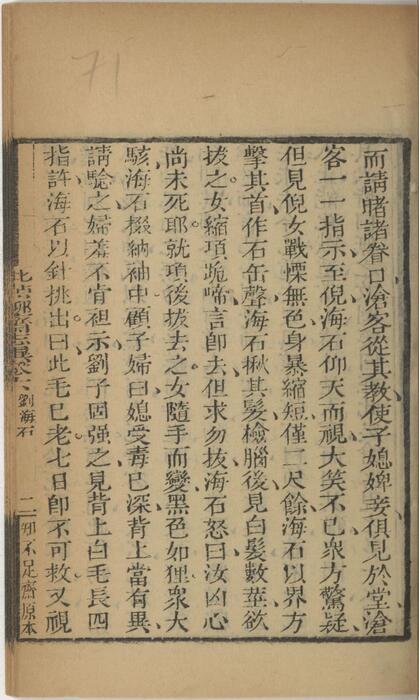 而請睹諸眷口滄客從其教使子媳婢妾俱見於堂滄
客一一指示至倪海石仰天而視大笑不已衆方驚疑
但見倪女戰慄無色身暴縮短僅二尺餘海石以界方
擊其首作石缶聲海石揪其髮檢腦後見白髮數莖欲
拔之女縮項跪啼言卽去但求勿拔海石怒曰汝凶心
尚未死耶就項後拔去之女隨手而變黑色如狸衆大
駭海石掇納袖中顧子婦曰媳受毒已深背上當有異
請驗之婦羞不肯袒示劉子固强之見背上白毛長四
指許海石以針挑出曰此毛已老七日卽不可救又視
劉海石
二
知不足齋原本
71